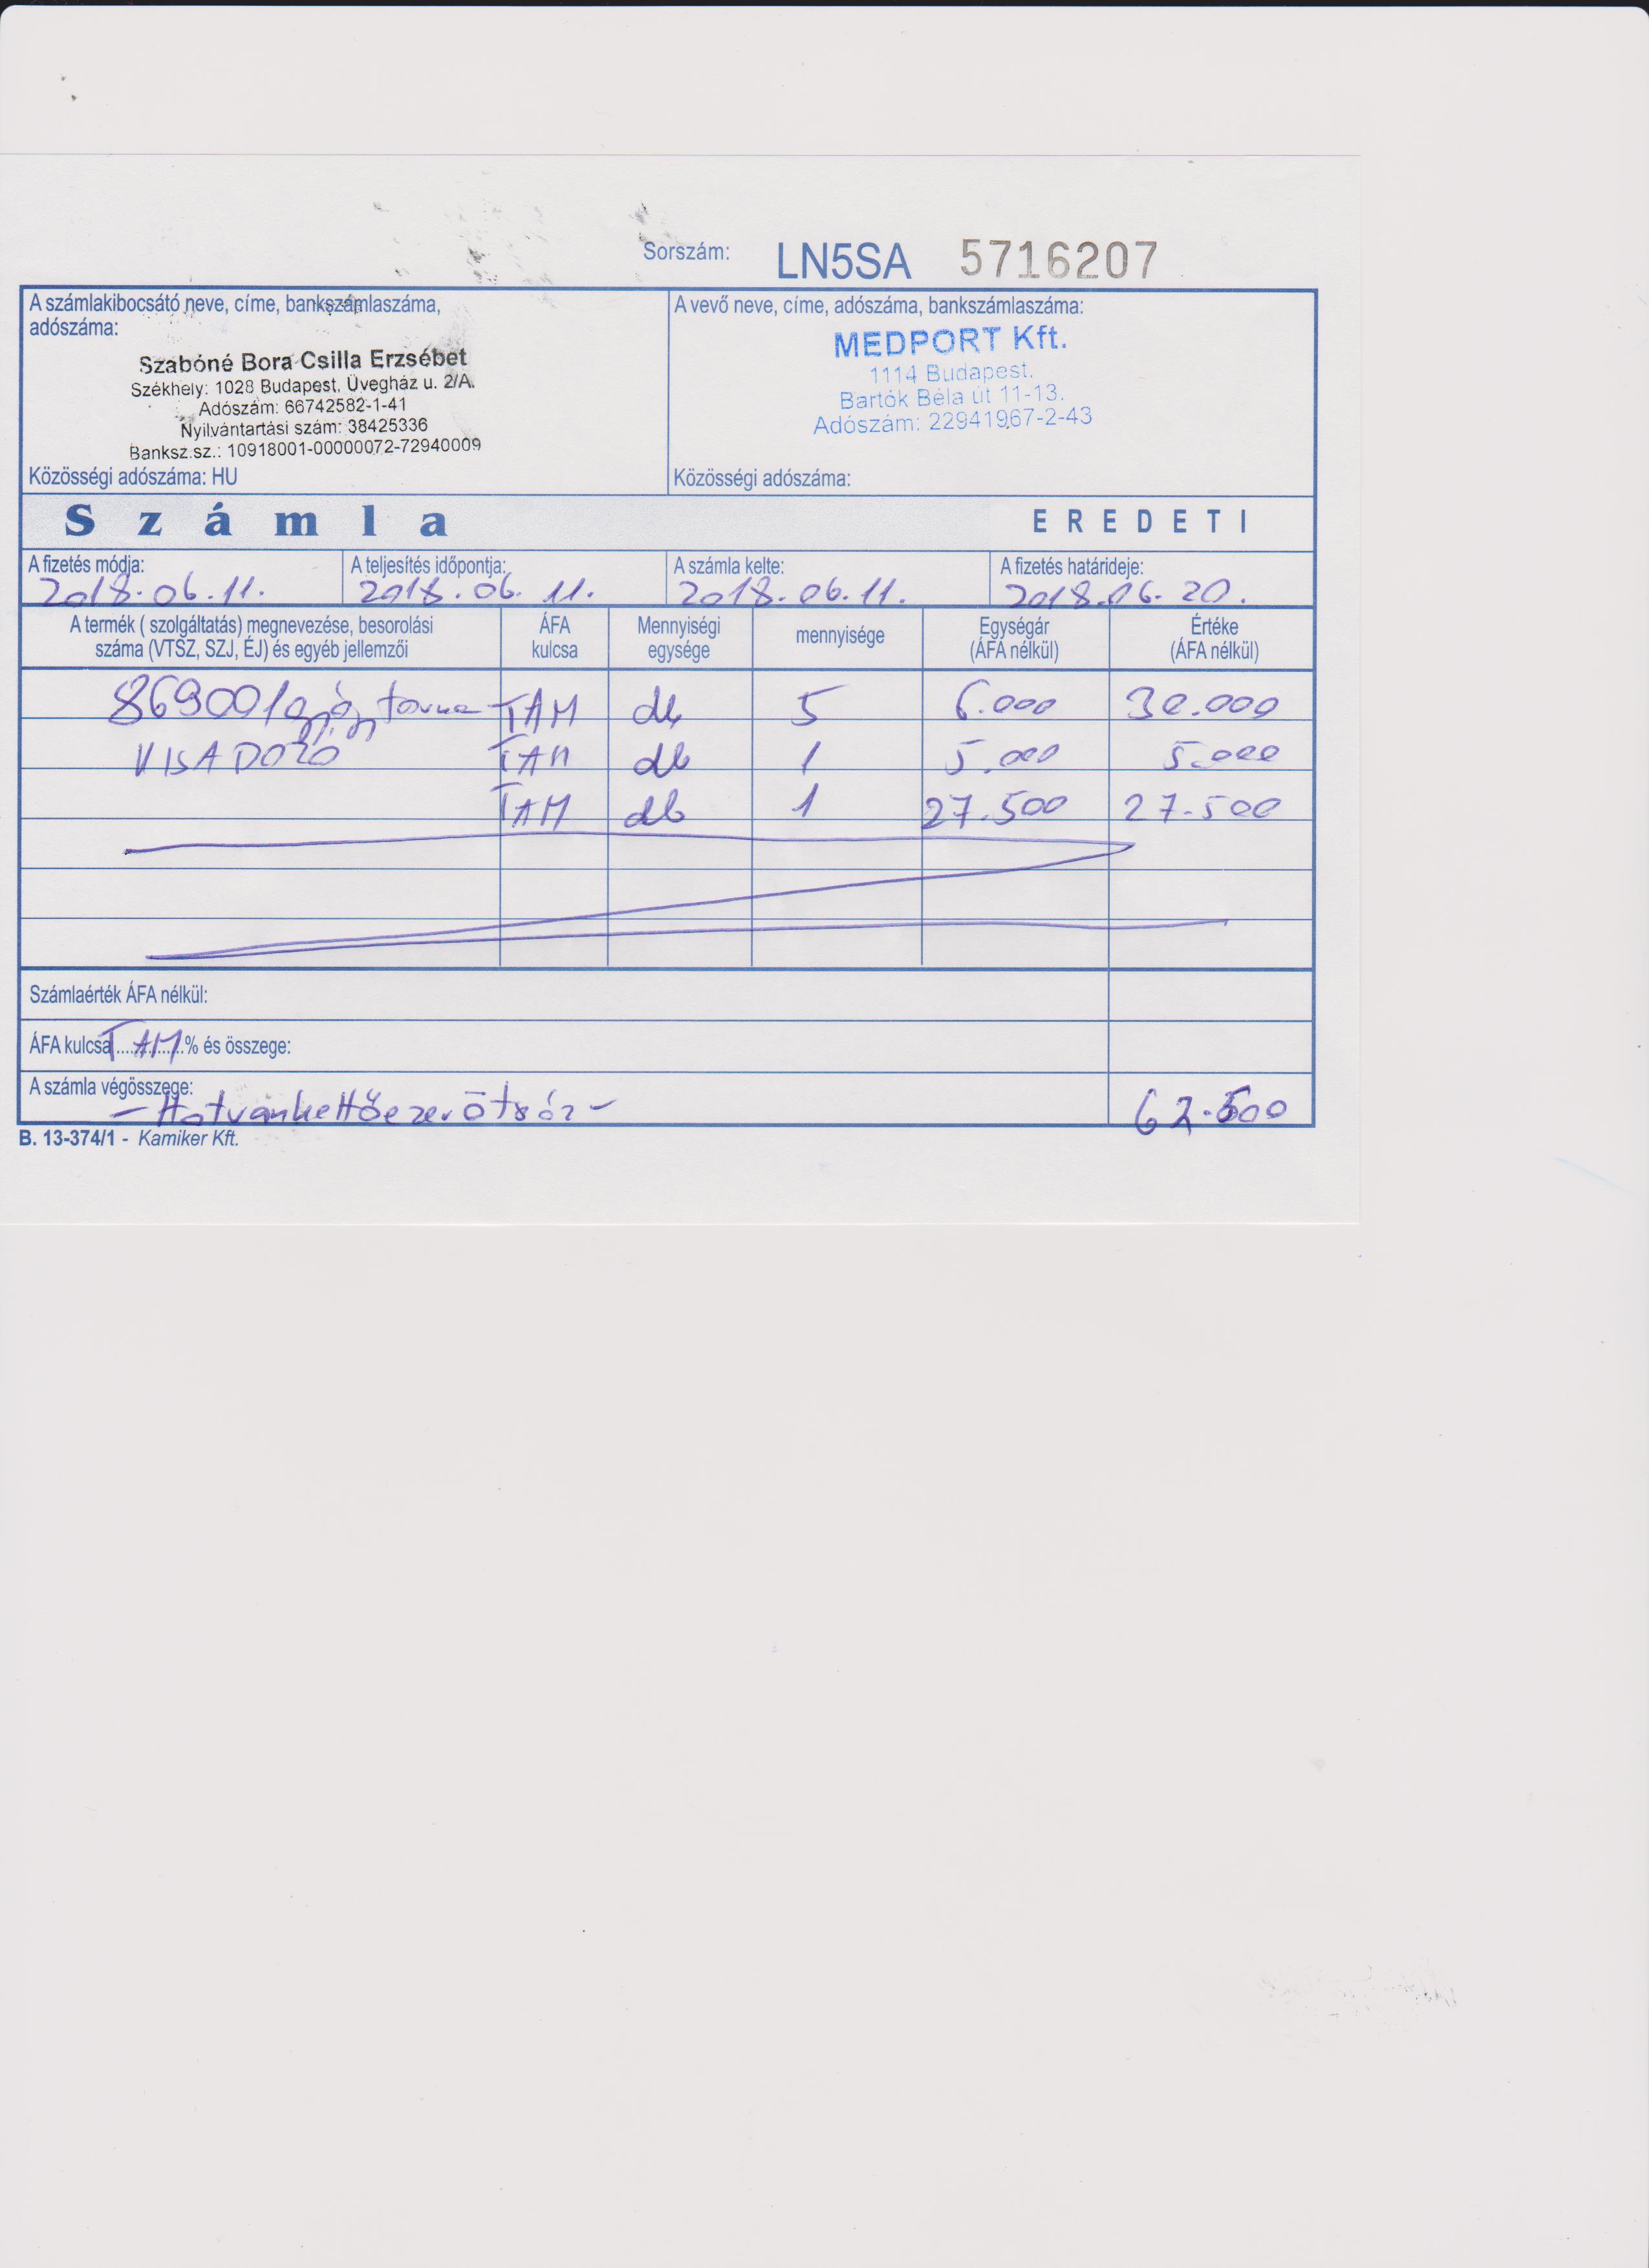 Sorszám: LN5SA 5716207
A számlakibocsátó neve, címe, bankszámlaszáma,
adószáma:
Szabóné Bora Csilla Erzsébet
Székhely: 1028 Budapest, Üvegház u. 2/A.
Adószám: 66742582-1-41
Nyilvántartási szám: 38425336
Banksz.sz.: 10918001-00000072-72940009
Közösségi adószáma: HU
A vevő neve, címe, adószáma, bankszámlaszáma:
MEDPORT Kft.
1114 Budapest,
Bartók Béla út 11-13.
Adószám: 22941967-2-43
Közösségi adószáma:
Számla EREDETI
A fizetés módja: A teljesítés időpontja: A számla kelte: A fizetés határideje:
2018.06.11. 2018.06.11. 2018.06.11. 2018.06.20.
A termék ( szolgáltatás) megnevezése, besorolási
száma (VTSZ, SZJ, ÉJ) és egyéb jellemzői
ÁFA
kulcsa
Mennyiségi
egysége
mennyisége
Egységár
(ÁFA nélkül)
Értéke
(ÁFA nélkül)
869001 torna TAM db 5 6.000 30.000
TAM db 1 5.000 5.000
TAM db 1 27.500 27.500
Számlaérték ÁFA nélkül:
ÁFA kulcsa TAM % és összege:
A számla végösszege:
- Hatvankettőezerötszáz - 62.500
B. 13-374/1 - Kamiker Kft.